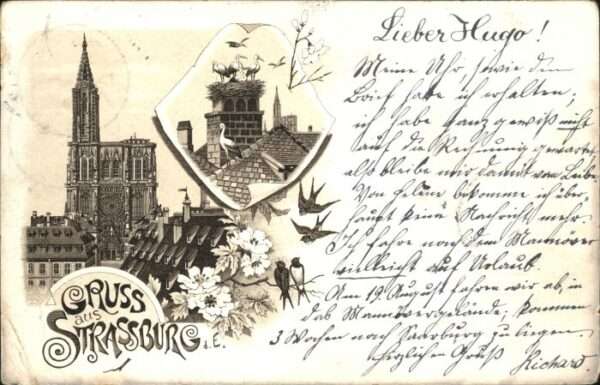 Lieber Hugo!
Meine Uhr, sowie den
Brief habe ich erhalten;
ich habe ganz gewiß nicht
auf die Rechnung gewartet
also bleibe mir damit vom Leibe.
Von Helene bekomme ich über-
haupt keine Nachricht mehr.
Ich fahre nach dem Manöver
vielleicht auf Urlaub.
Am 19. August fahren wir ab, in
das Manövergelände; kommen
3 Wochen nach Saarburg zu liegen.
Herzlichen Gruß
Richard.
GRUSS
aus
STRASSBURG i. E.